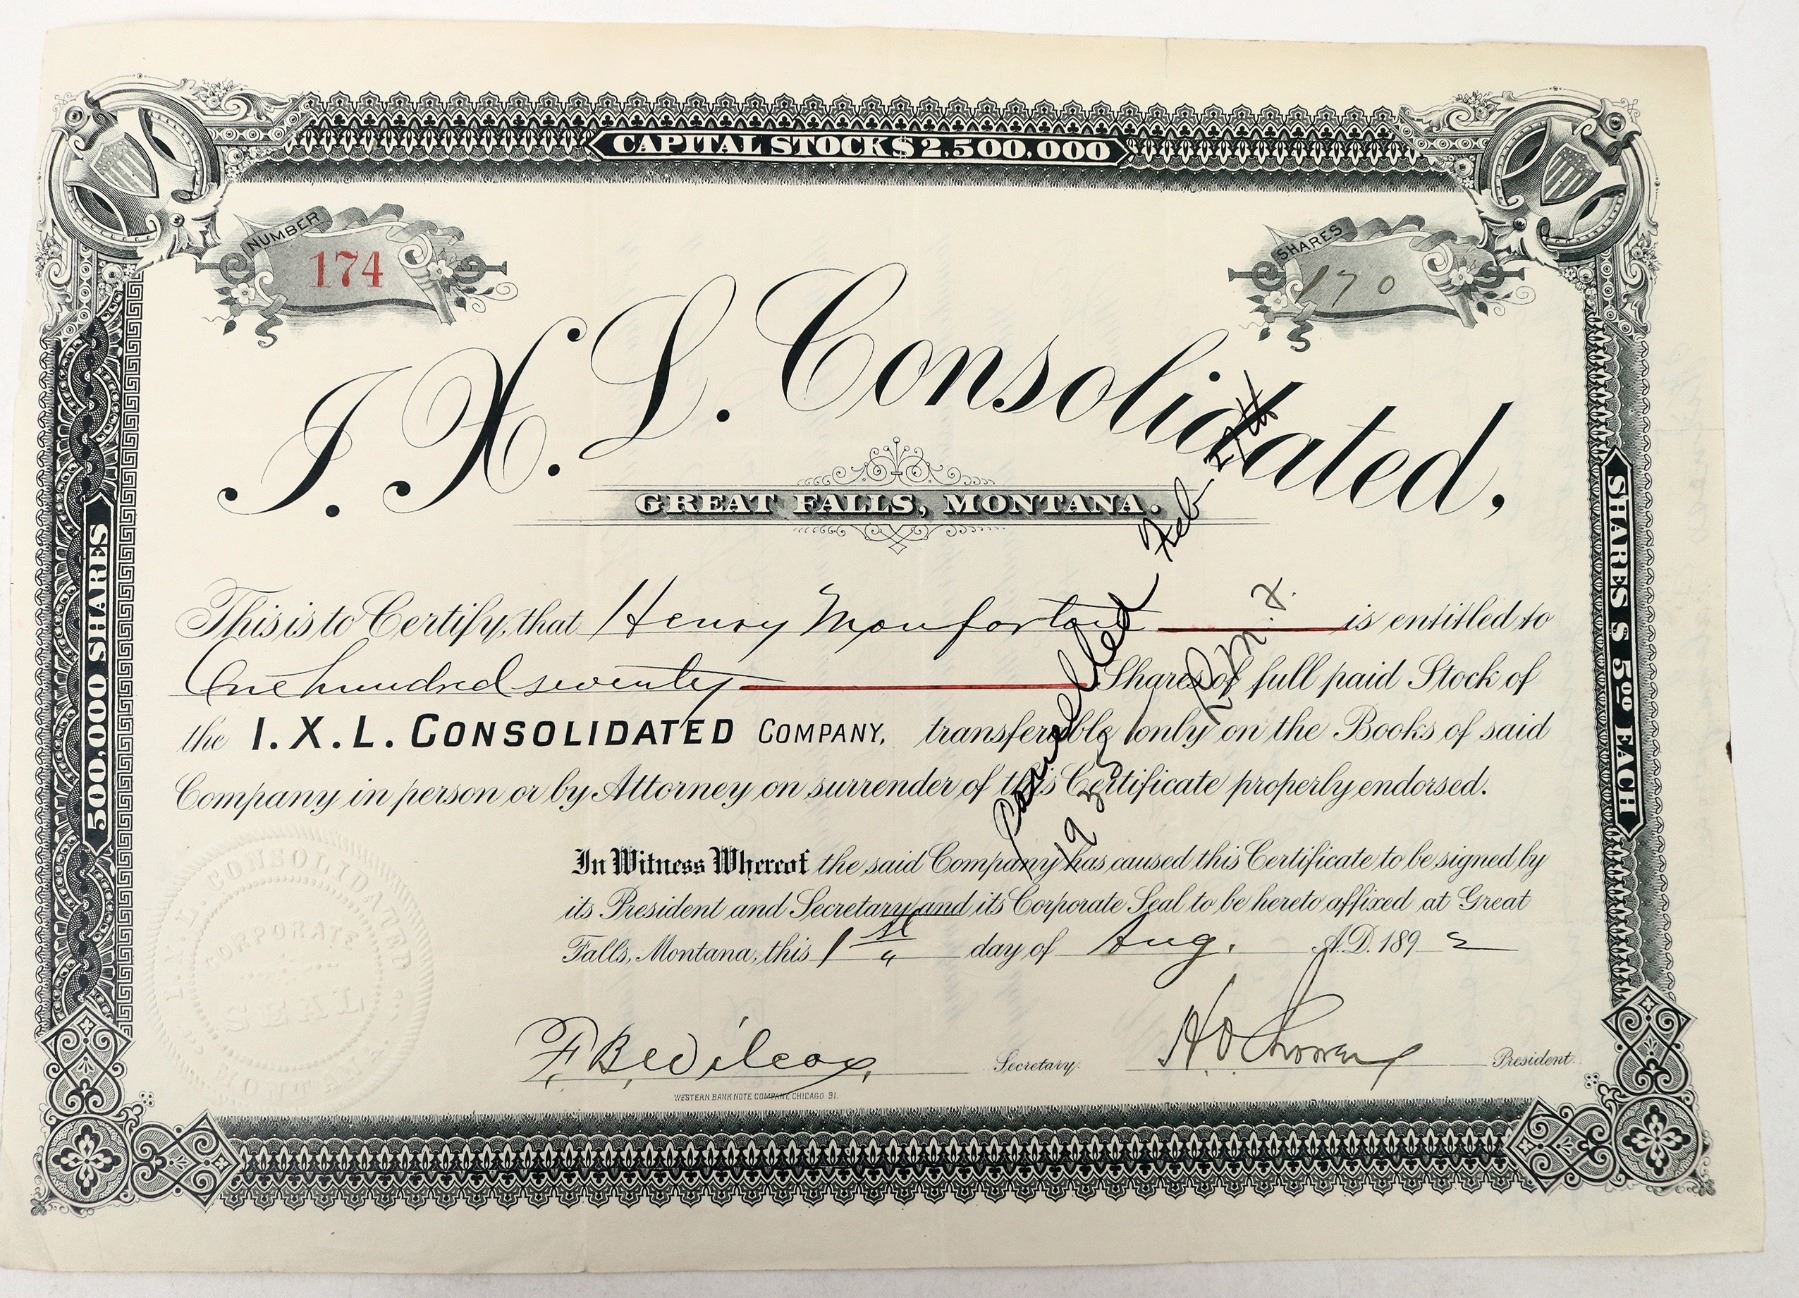 CAPITAL STOCK $2,500,000
NUMBER
174
SHARES
170
I. X. L. Consolidated,
GREAT FALLS, MONTANA.
500,000 SHARES
SHARES $5.00 EACH
This is to Certify, that Henry Monfortan is entitled to
One hundred seventy Shares of full paid Stock of
the I. X. L. CONSOLIDATED COMPANY, transferable only on the Books of said
Company in person or by Attorney on surrender of this Certificate properly endorsed.
Cancelled Feb 27th
1933
In Witness Whereof the said Company has caused this Certificate to be signed by
its President and Secretary and its Corporate Seal to be hereto affixed at Great
Falls, Montana, this 1st day of Aug. A.D. 1892
I. X. L. CONSOLIDATED Co.
CORPORATE
SEAL
MONTANA
F. B. Wilcox, Secretary.
H. O. Chowen President.
WESTERN BANK NOTE COMPANY CHICAGO 91.